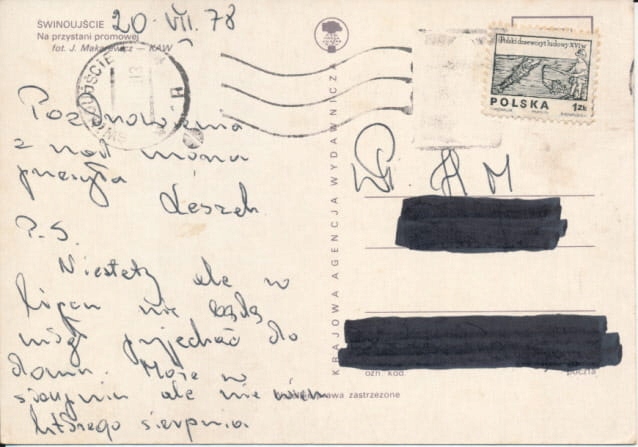 ŚWINOUJŚCIE
Na przystani promowej
fot. J. Makarewicz — KAW
20 VII. 78
Pozdrowienia
z nad morza
przesyła
Leszek.
P.S.
Niestety ale w
lipcu nie będę
mógł przyjechać do
domu. Może w
sierpniu ale nie wiem
którego sierpnia.
KRAJOWA AGENCJA WYDAWNICZA
Polski drzeworyt ludowy XVI w.
POLSKA
1 ZŁ
H M
ozn. kod.
poczta
zastrzeżone